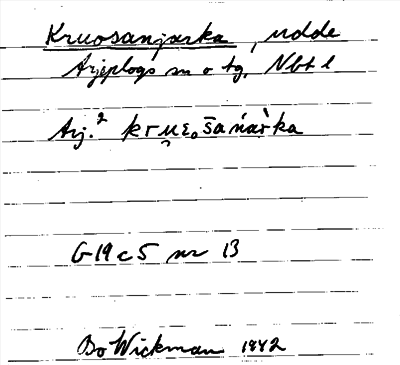 Kruosanjarka, udde
Arjeplogs sn o tg, Nbtl
Arj.² kru̯ɛₒšańar̀ka
G19c5 nr 13
Bo Wickman 1942